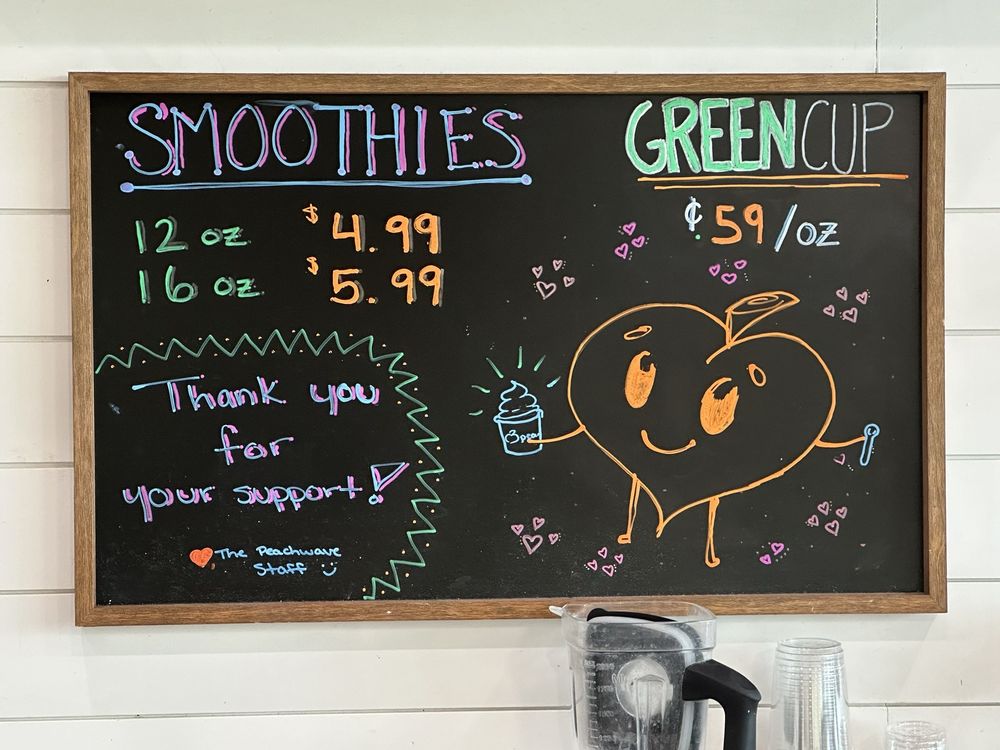 SMOOTHIES
12 oz $4.99
16 oz $5.99
Thank you
for
your support!
The Peachwave
Staff
GREENCUP
¢59/oz